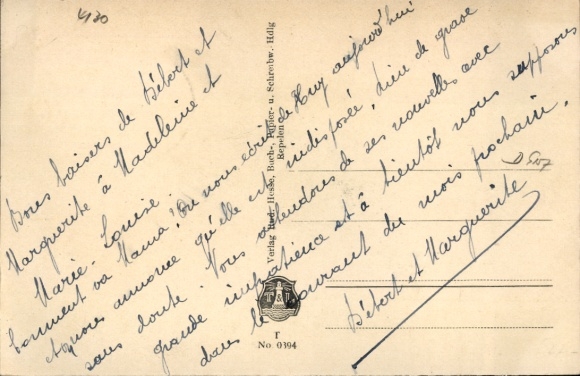 4/30
Bons baisers de Bébert et
Marguerite à Madeleine et
Marie-Louise.
Comment va Mama? On nous écrit de Huy aujourd'hui
et nous annonce qu'elle est indisposée, rien de grave
sans doute. Nous attendons de ses nouvelles avec
grande impatience et à bientôt nous supposons
dans le courant du mois prochain.
Bébert et Marguerite
Verlag Rud. Hesse, Buch-, Papier- u. Schreibw.-Hdlg
Repelen
T & P
r
No 0394